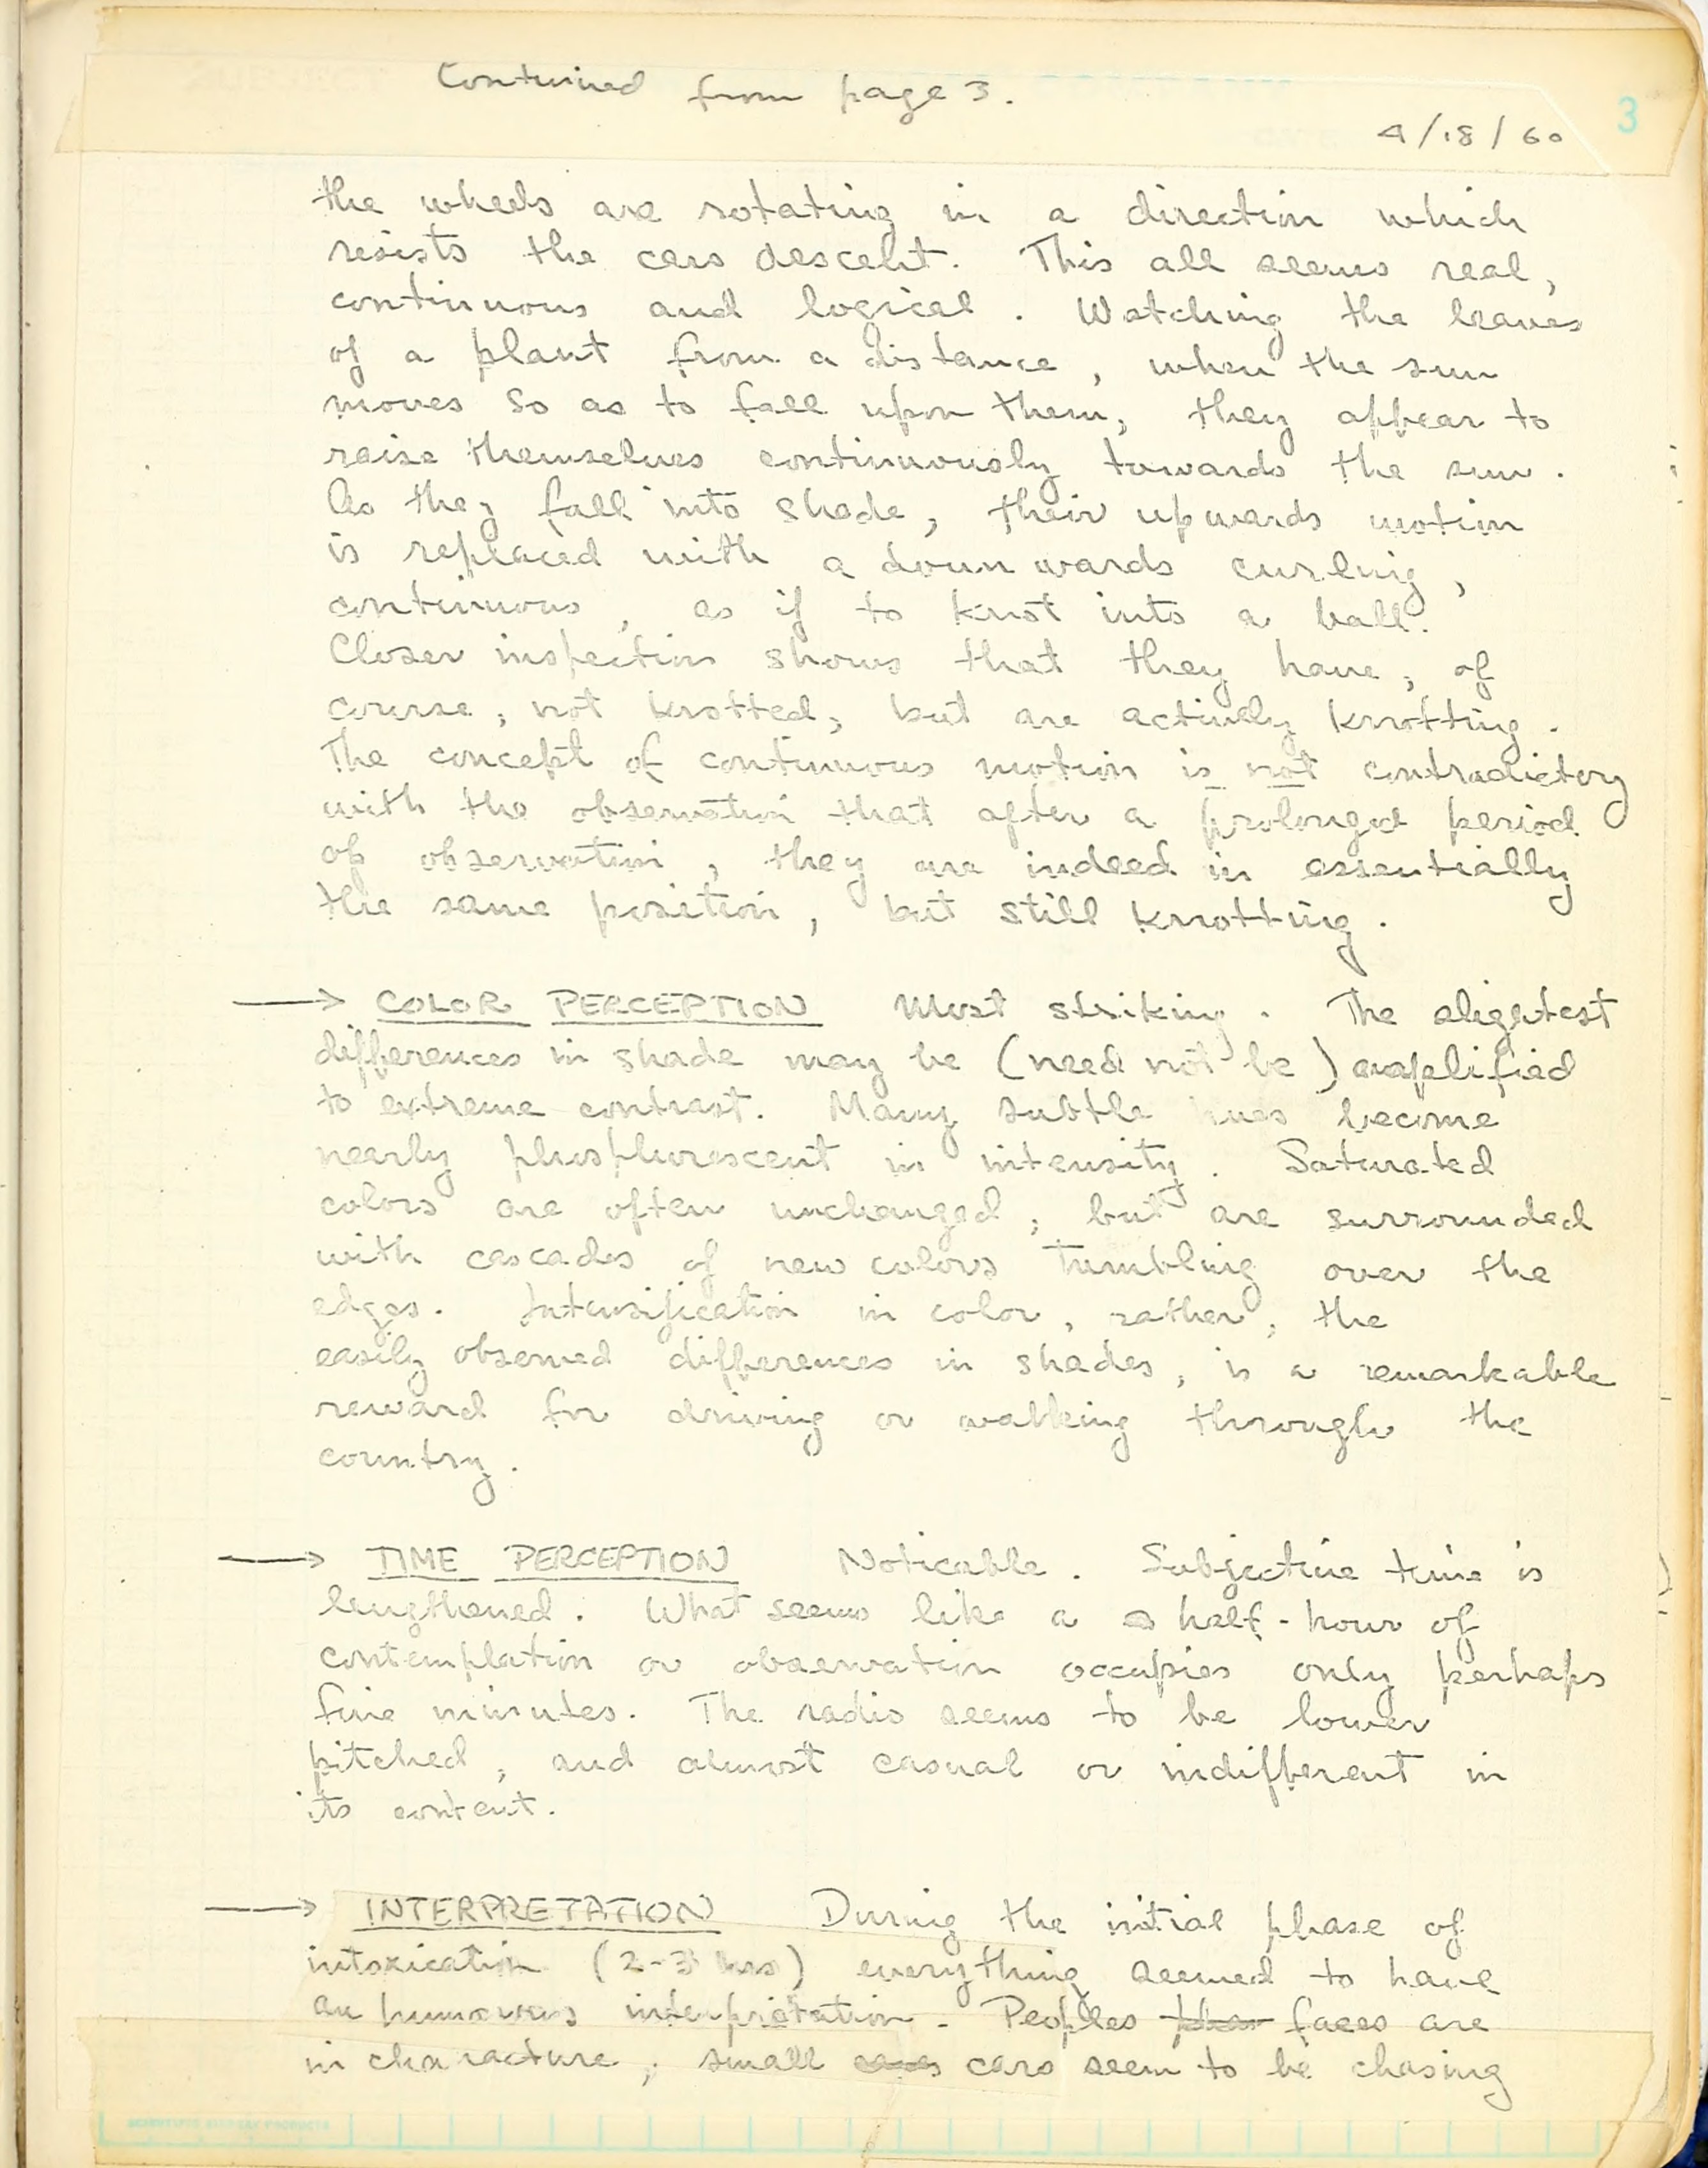 Continued from page 3.
3
4/18/60
the wheels are rotating in a direction which
resists the cars descent. This all seems real,
continuous and logical. Watching the leaves
of a plant from a distance, when the sun
moves so as to fall upon them, they appear to
raise themselves continuously towards the sun.
As they fall into shade, their upwards motion
is replaced with a downwards curling,
continuous, as if to knot into a ball.
Closer inspection shows that they have, of
course, not knotted, but are actively knotting.
The concept of continuous motion is not contradictory
with the observation that after a prolonged period
of observation, they are indeed in essentially
the same position, but still knotting.
→ COLOR PERCEPTION Most striking. The slightest
differences in shade may be (need not be) amplified
to extreme contrast. Many subtle hues become
nearly phosphorescent in intensity. Saturated
colors are often unchanged, but are surrounded
with cascades of new colors tumbling over the
edges. Intensification in color, rather, the
easily observed differences in shades, is a remarkable
reward for driving or walking through the
country.
→ TIME PERCEPTION Noticable. Subjective time is
lengthened. What seems like a half-hour of
contemplation or observation occupies only perhaps
five minutes. The radio seems to be lower
pitched, and almost casual or indifferent in
its content.
→ INTERPRETATION During the initial phase of
intoxication (2-3 hrs) everything seemed to have
an humorous interpretation. Peoples faces are
in characture, small cars seem to be chasing